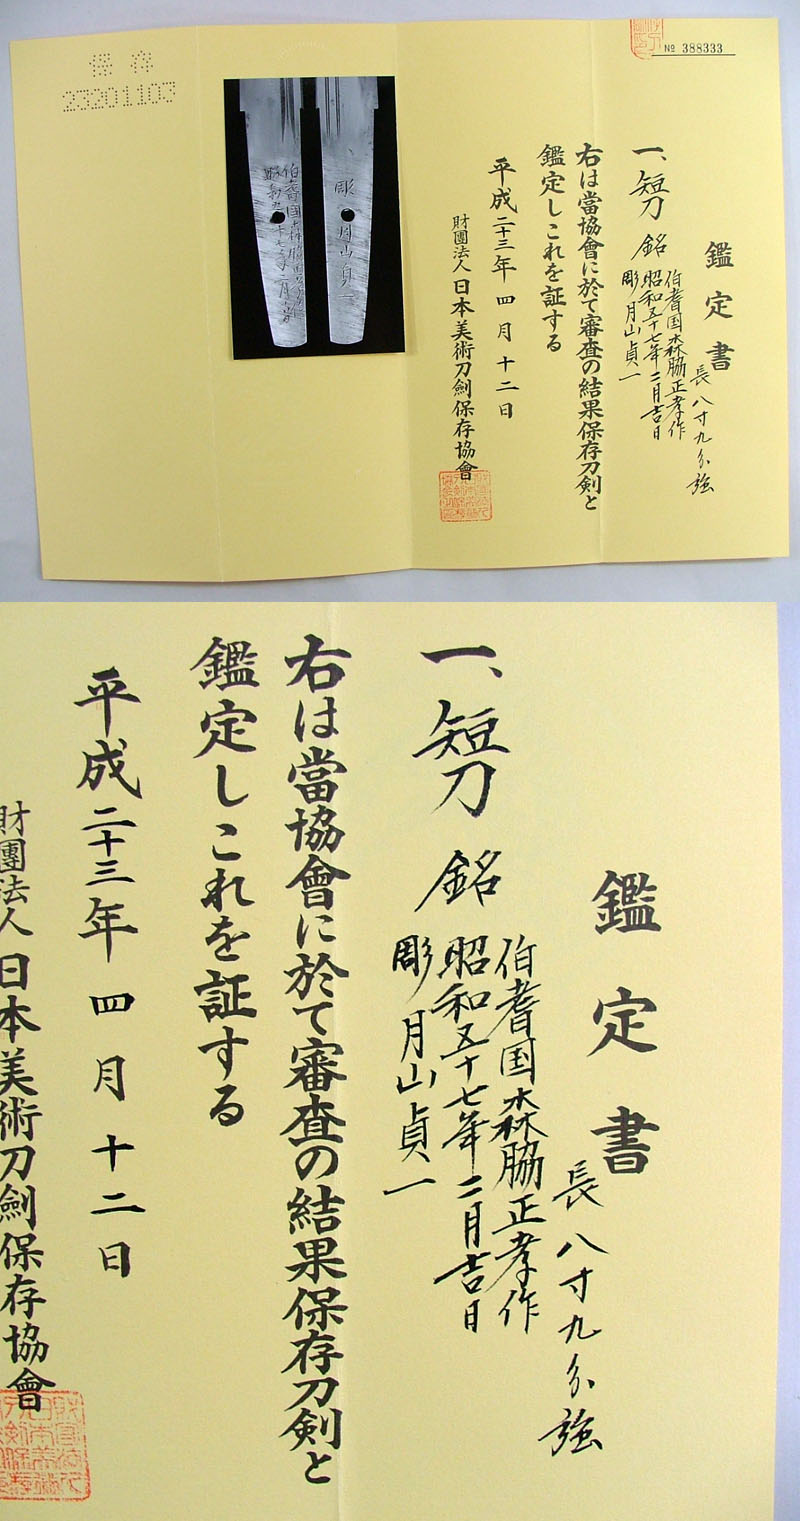 保存
23201103
№ 388333
鑑定書
長八寸九分強
一、短刀 銘 伯耆国森脇正孝作
昭和五十七年二月吉日
彫月山貞一
右は當協會に於て審査の結果保存刀剣と
鑑定しこれを証する
平成二十三年四月十二日
財團法人 日本美術刀劍保存協會
彫月山貞一
鑑定書
長八寸九分強
一、短刀 銘 伯耆国森脇正孝作
昭和五十七年二月吉日
彫月山貞一
右は當協會に於て審査の結果保存刀剣と
鑑定しこれを証する
平成二十三年四月十二日
財團法人 日本美術刀劍保存協會